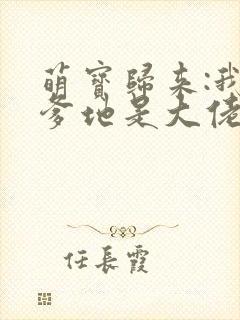 萌寳歸来:我
爹地是大佬
任長霞